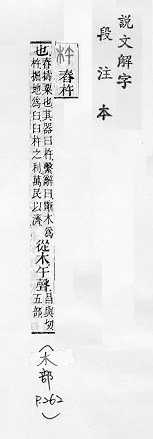 說文解字
段注本
杵 舂杵
也舂擣粟也其器曰杵繫辭曰斷木爲
杵掘地爲臼臼杵之利萬民以濟從木午聲昌與切
五部
（木部
P.262）